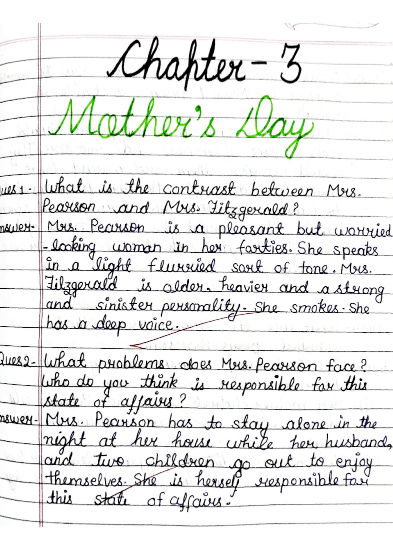 Chapter-3
Mother's Day
Ques1- What is the contrast between Mrs.
Pearson and Mrs. Fitzgerald?
Answer- Mrs. Pearson is a pleasant but worried
-looking woman in her forties. She speaks
in a light flurried sort of tone. Mrs.
Fitzgerald is older. heavier and a strong
and sinister personality. She smokes. She
has a deep voice.
Ques2- What problems does Mrs. Pearson face?
Who do you think is responsible for this
state of affairs?
Answer- Mrs. Pearson has to stay alone in the
night at her house while her husband,
and two children go out to enjoy
themselves. She is herself responsible for
this state of affairs.